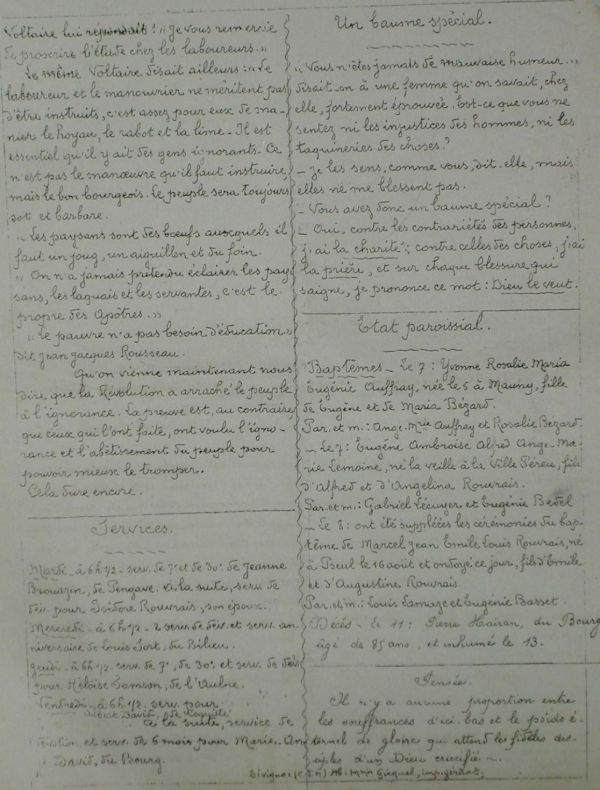 Voltaire lui répondait : "Je vous remercie
de proscrire l'étude chez les laboureurs."
Le même Voltaire disait ailleurs : "Le
laboureur et le manouvrier ne méritent pas
d'être instruits, c'est assez pour eux de ma-
nier le hoyau, le rabot et la lime. Il est
essentiel qu'il y ait des gens ignorants. Ce
n'est pas le manœuvre qu'il faut instruire,
mais le bon bourgeois. Le peuple sera toujours
sot et barbare.
"Les paysans sont des bœufs auxquels il
faut un joug, un aiguillon et du foin.
"On n'a jamais prétendu éclairer les pay
sans, les laquais et les servantes, c'est le
propre des Apôtres."
"Le pauvre n'a pas besoin d'éducation"
dit Jean Jacques Rousseau.
Qu'on vienne maintenant nous
dire que la Révolution a arraché le peuple
à l'ignorance. La preuve est, au contraire
que ceux qui l'ont faite, ont voulu l'igno-
rance et l'abêtissement du peuple pour
pouvoir mieux le tromper.
Cela dure encore.
Services.
Mardi - à 6h 1/2 - serv. de 7e et de 30e de Jeanne
de Pengave. à la suite, serv. de
dév. pour Isidore Rouvrais, son époux.
Mercredi - à 6h 1/2 - 2 serv. de dév. et serv. an
niversaire de Louis Sort, du Bilieu.
Jeudi - à 6h 1/2 serv. de 7e, de 30e et serv. de dév
pour Héloïse Samson, de l'Aulne.
Vendredi - à 6h 1/2 serv. pour
David, de
à la suite, service de
dévotion et serv. de 6 mois pour Marie-An
David, du Bourg.
Un baume spécial.
"Vous n'êtes jamais de mauvaise humeur"
disait-on à une femme qu'on savait, chez
elle, fortement éprouvée. Est-ce que vous ne
sentez ni les injustices des hommes, ni les
taquineries des choses ?
- Je les sens, comme vous, dit-elle, mais
elles ne me blessent pas.
- Vous avez donc un baume spécial ?
- Oui, contre les contrariétés des personnes,
j'ai la charité ; contre celles des choses, j'ai
la prière, et sur chaque blessure qui
saigne, je prononce ce mot : Dieu le veut.
Etat paroissial.
Baptêmes - Le 7 : Yvonne Rosalie Maria
Eugénie Auffray, née le 5 à Mauny, fille
de Eugène et de Maria Bézard.
Par. et m. : Ange-Mrie Auffray et Rosalie Bézard
- Le 7 : Eugène Ambroise Alfred Ange-Ma-
rie Lemoine, né la veille à la Ville Péreu, fils
d'Alfred et d'Angelina Rouvrais.
Par. et m. : Gabriel Lécuyer et Eugénie Bedel
- Le 8 : ont été suppléées les cérémonies du bap-
tême de Marcel Jean Emile Louis Rouvrais, né
à Pseul le 16 août et ondoyé ce jour, fils d'Emile
et d'Augustine Rouvrais.
Par. et m. : Louis Lamaze et Eugénie Basset
Décès - Le 11 : Pierre Hairan, du Bourg
âgé de 85 ans, et inhumé le 13.
Pensée.
Il n'y a aucune proportion entre
les souffrances d'ici-bas et le poids é-
ternel de gloire qui attend les fidèles des-
d'un Dieu crucifié.
Sévignac (C.d.N) Ab. Mrie Gicquel, imp. gérant.